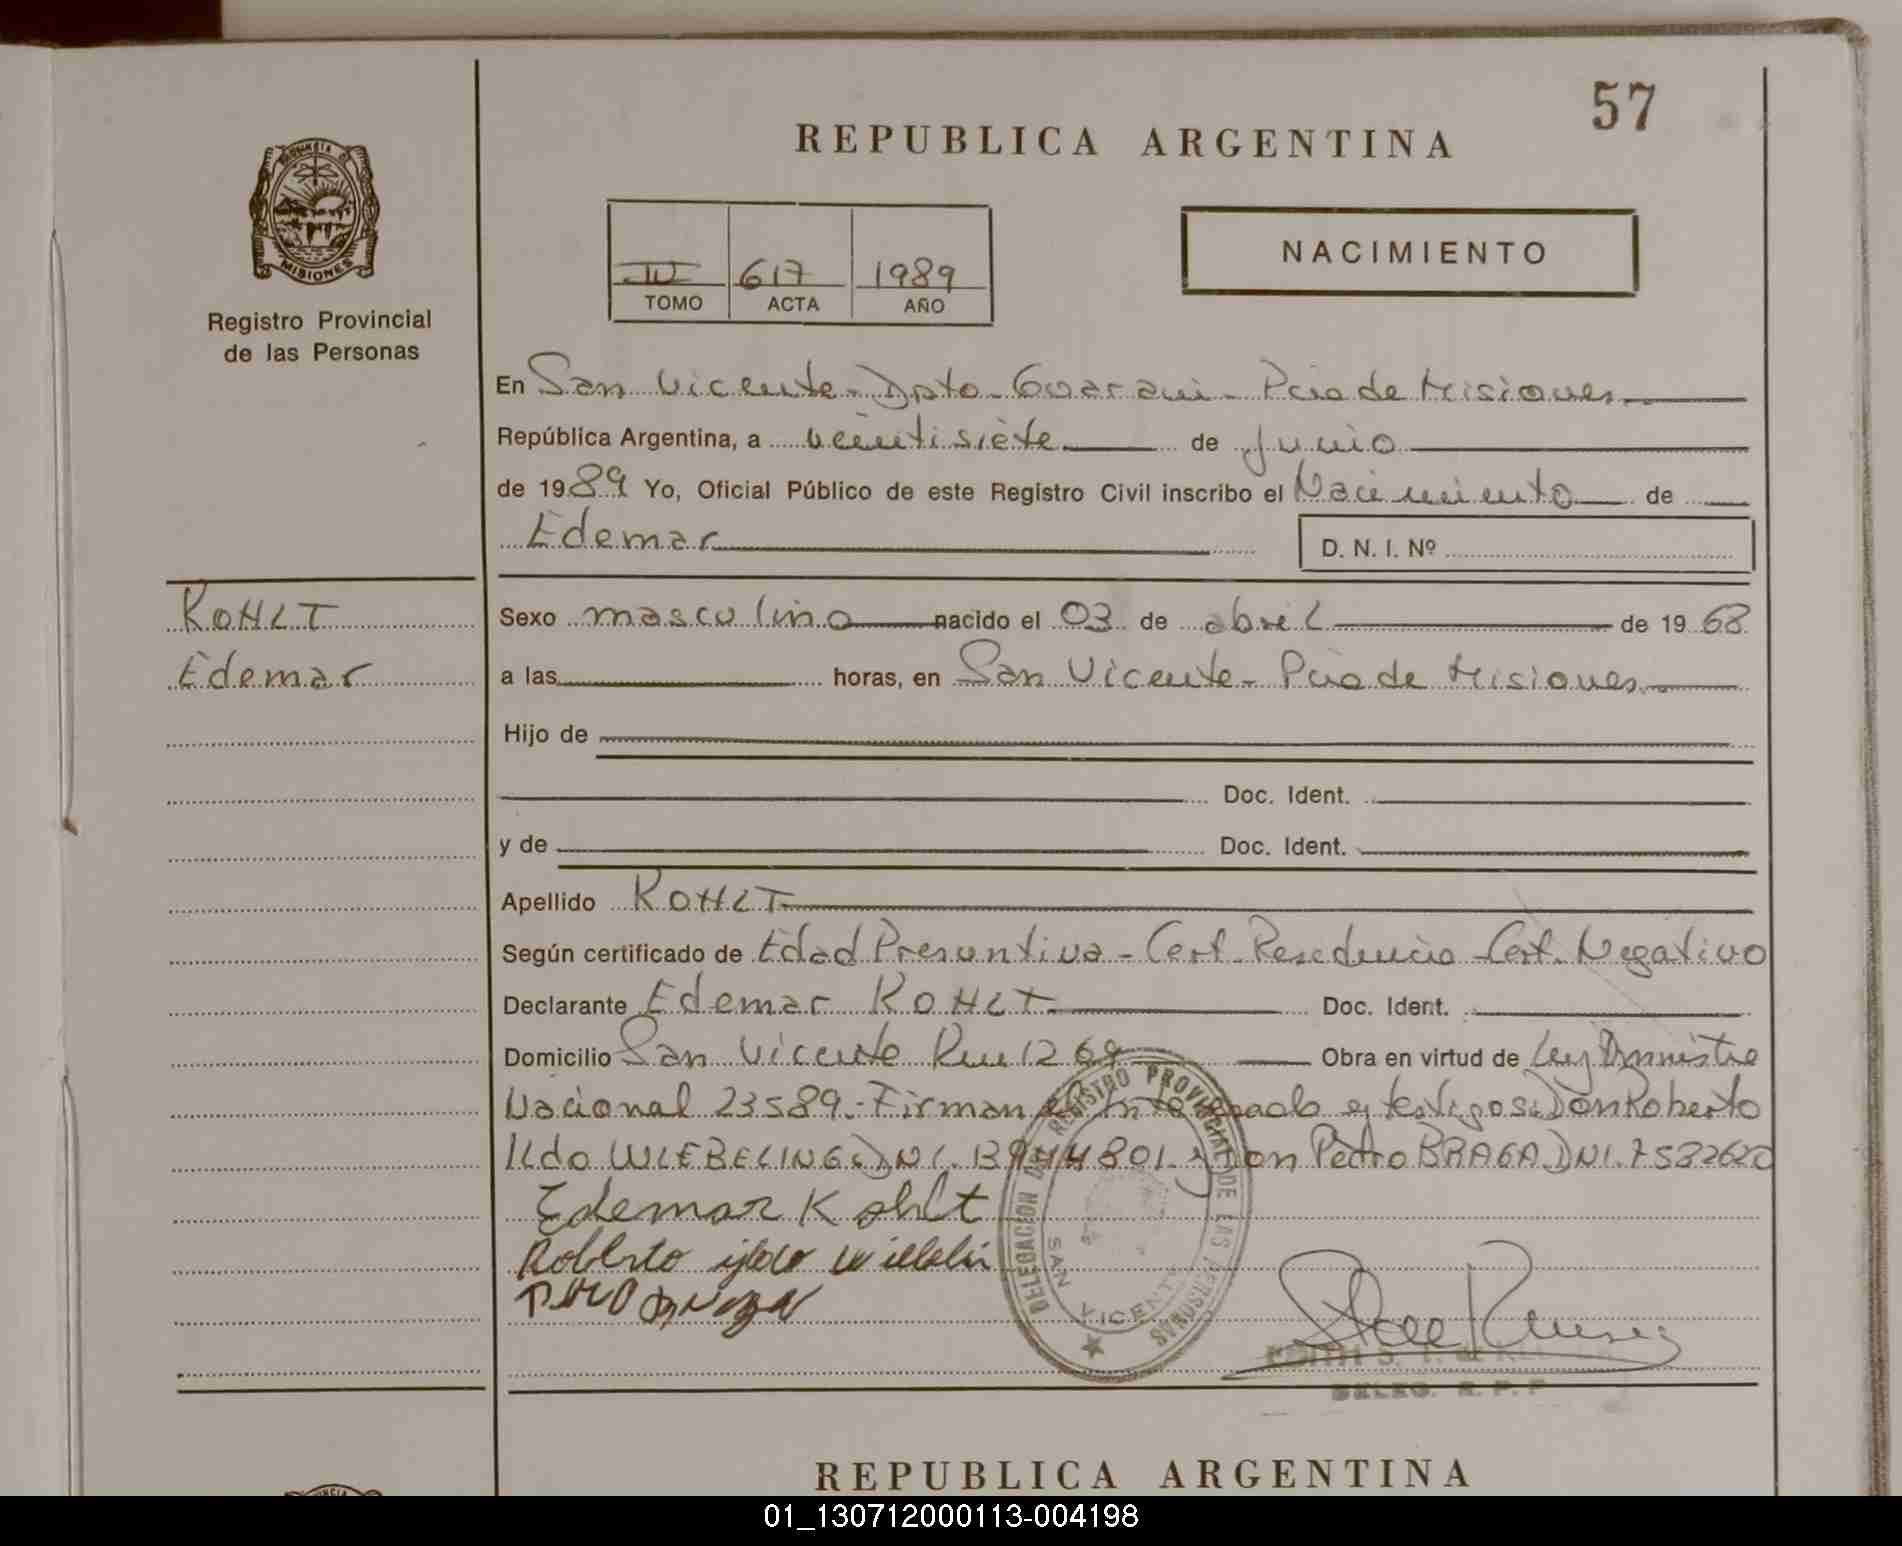 57
REPUBLICA ARGENTINA
PROVINCIA D
MISIONES
Registro Provincial
de las Personas
IV 617 1989
TOMO ACTA AÑO
NACIMIENTO
En San Vicente - Dpto - Guarani - Pcia de Misiones
República Argentina, a veintisiete de Junio
de 1989 Yo, Oficial Público de este Registro Civil inscribo el Nacimiento de
Edemar D. N. I. Nº
KOHLT
Edemar
Sexo masculino nacido el 03 de abril de 1968
a las horas, en San Vicente - Pcia de Misiones
Hijo de
Doc. Ident.
y de Doc. Ident.
Apellido KOHLT
Según certificado de Edad Presuntiva - Cert. Residencia - Cert. Negativo
Declarante Edemar KOHLT Doc. Ident.
Domicilio San Vicente Km 1269 Obra en virtud de Ley Amnistia
Nacional 23589.- Firman el Interesado y testigos: Don Roberto
Ildo WIEBELING DNI. 13944801. y Don Pedro BRAGA DNI. 7532620
Edemar Kohlt
Roberto ildo
DELEGACION DEL REGISTRO PROVINCIAL DE LAS PERSONAS
SAN VICENTE
EDITH S. T. de
DELEG. R. P. P
REPUBLICA ARGENTINA
01_130712000113-004198